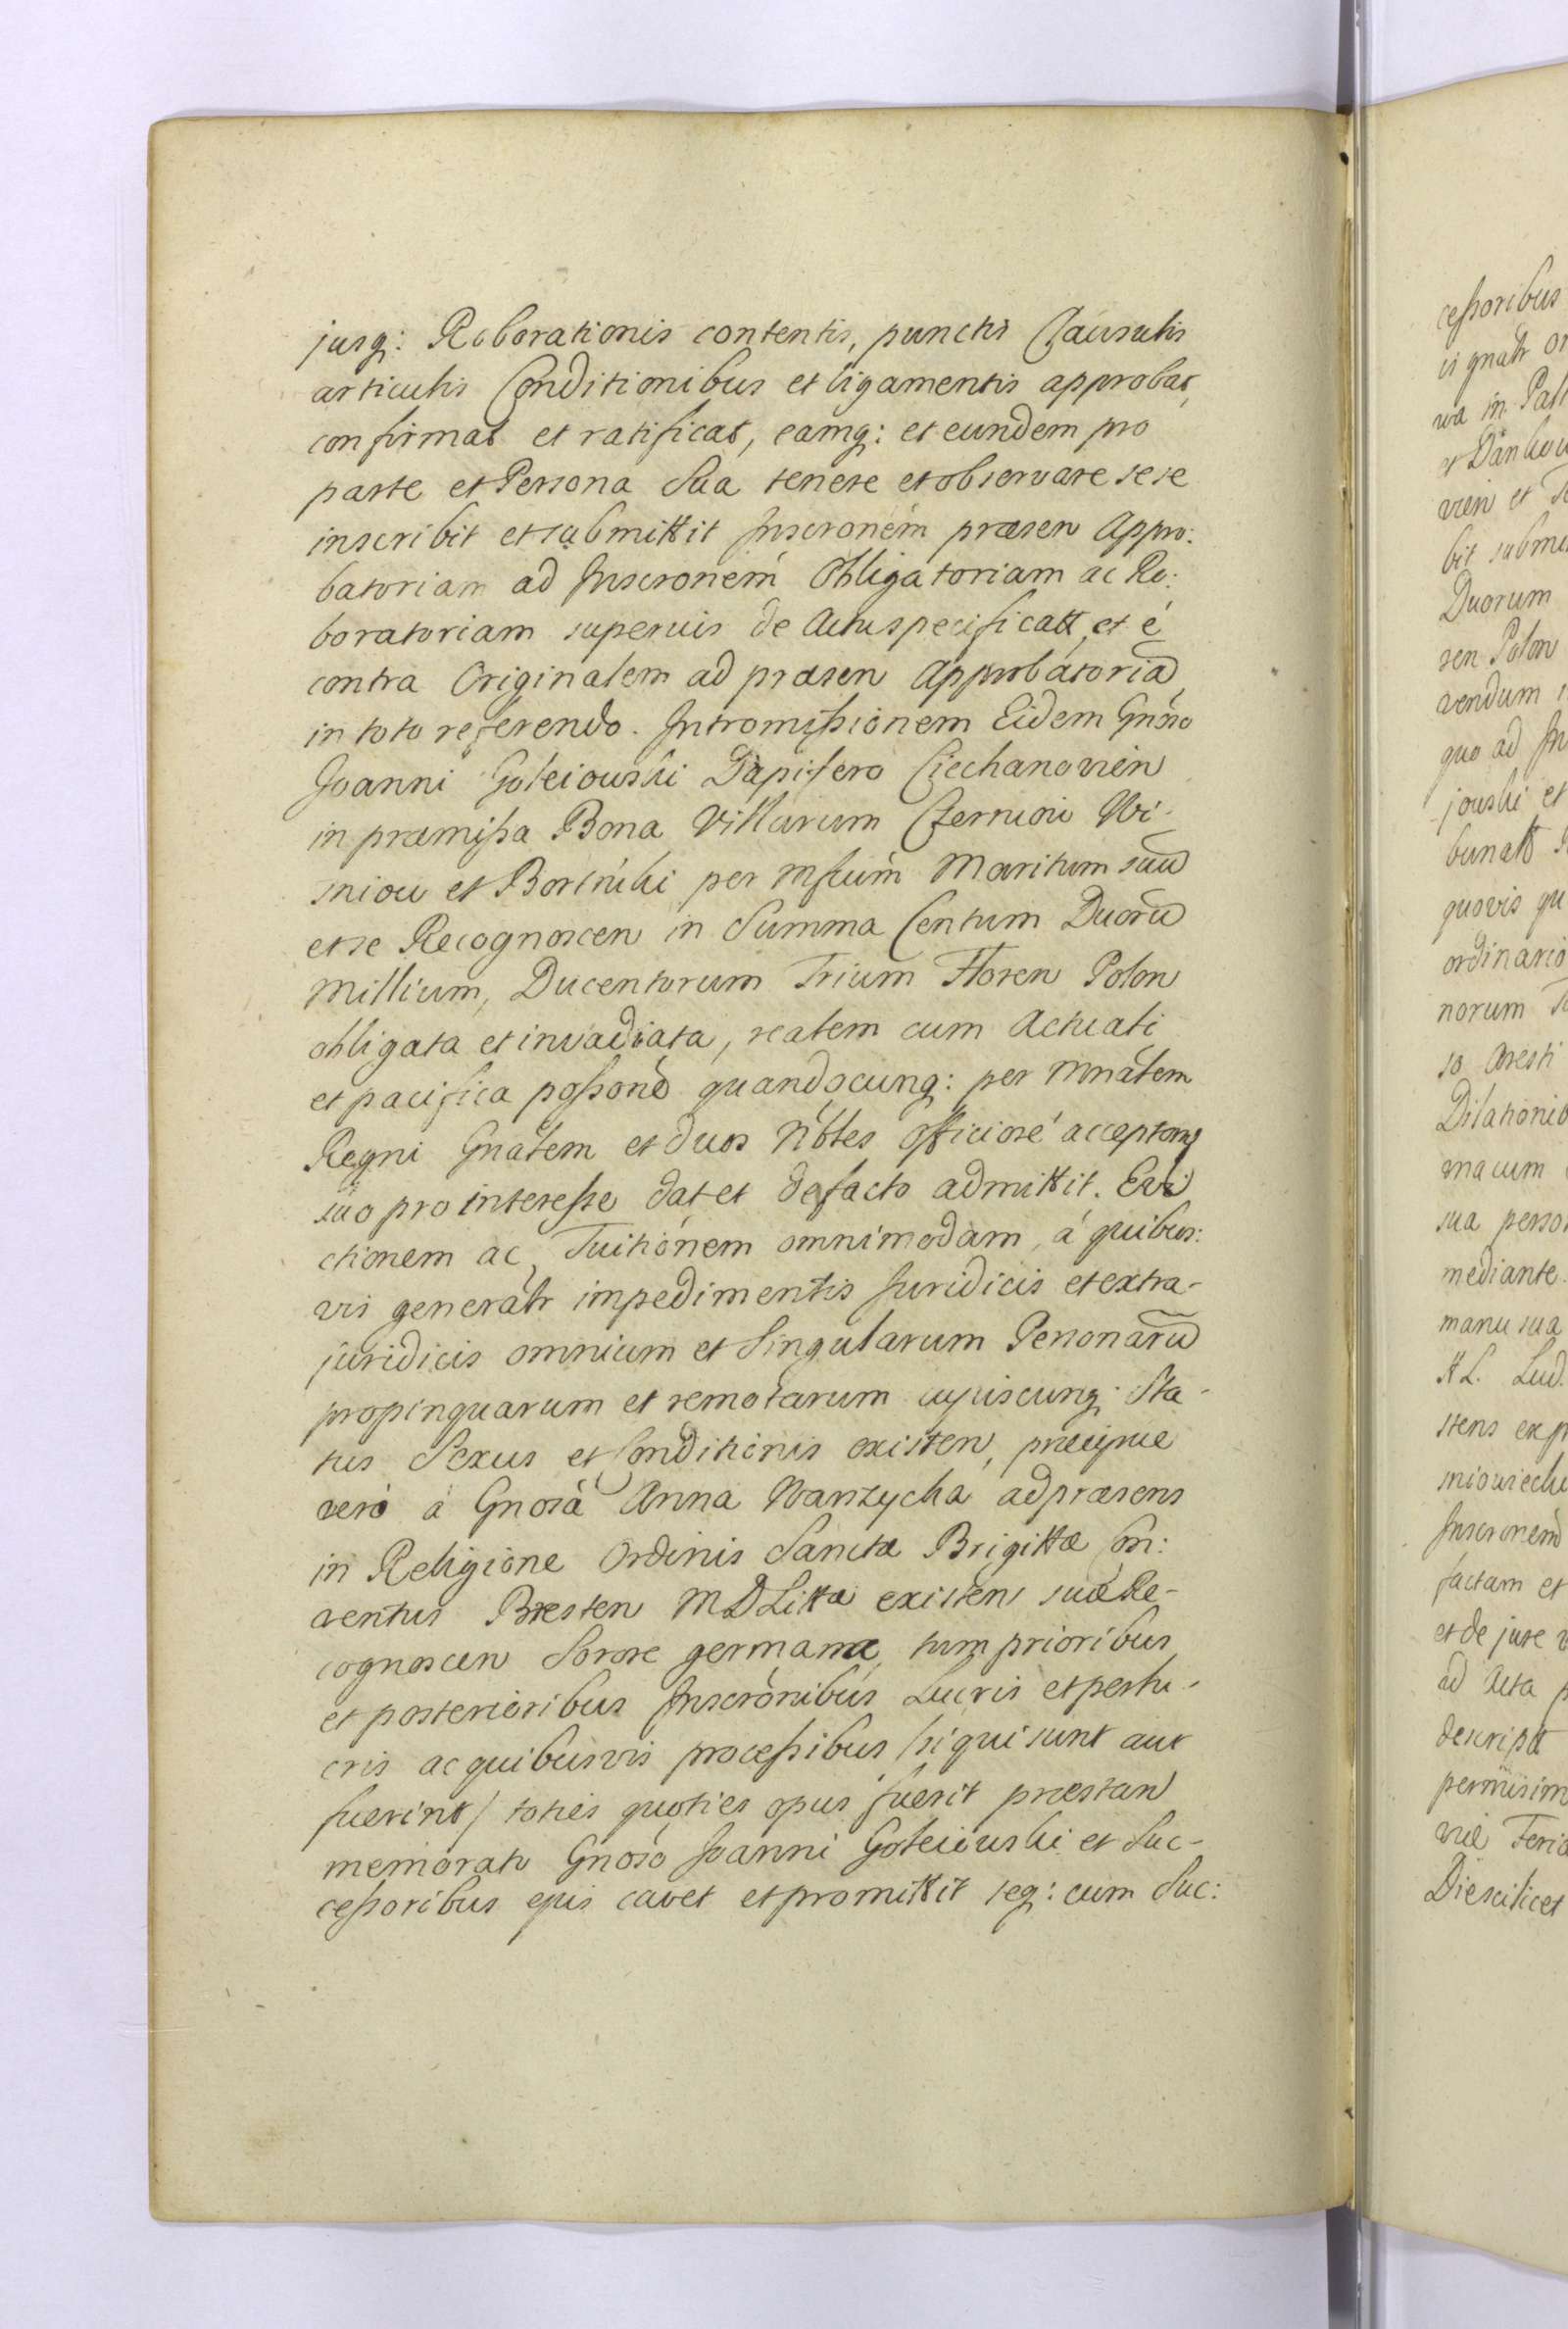 jusq: Roborationis contentis, punctis Clausulis
articulis Conditionibus et ligamentis approbat,
confirmat et ratificat, eamq: et eundem pro
parte et Persona Sua tenere et observare sese
inscribit et submittit Inscronem præsen Appro:
batoriam ad Inscronem Obligatoriam ac Ro:
boratoriam superius de Actu specificatt et é
contra Originalem ad præsen Approbatoriã
in toto referendo. Intromissionem Eidem Gnoso
Joanni Goleiouski Dapifero Ciechanovien
in præmissa Bona Villarum Czerniow Wi-
sniou et Bortniki per Mfcum Maritum suũ
et se Recognoscen in Summa Centum Duorũ
Millium, Ducentorum Trium Floren Polon
obligata et invadiata, realem cum Actuali
et pacifica possone quandocunq: per Mnalem
Regni Gnalem et duos Nobles officiose acceptong
suo pro interesse dat et defacto admittit. Evi
ctionem ac Tuitionem omnimodam, á quibus:
vis generalr impedimentis Juridicis et extra-
juridicis omnium et Singularum Personarũ
propinquarum et remotarum cujuscunq: Sta-
tus Sexus et Conditionis existen, præcipue
vero a Gnosa Anna Wanzycha ad præsens
in Religione Ordinis Sanctæ Brigittæ Con:
ventus Bresten MDLittæ existen suæ Re-
cognoscen Sorore germana, tum prioribus
et posterioribus Inscronibus Lucris et perlu-
cris ac quibusvis processibus /si qui sunt aut
fuerint/ toties quoties opus fuerit præstan
memorato Gnoso Joanni Goleiouski et Suc-
cessoribus ejus cavet et promittit seq: cum Suc:
cessoribus
is gnalr
wa in Pal
vien et
bit subm
Duorum
sen Polon
vendum
quo ad In
jouski et
quovis qu
ordinario
norum
Dilationib
macum
sua perso
mediante
manu sua
Lud.
stens exp
Inscronem
factam et
et de jure
ad Acta
descript
permisim
Feria
Die scilicet